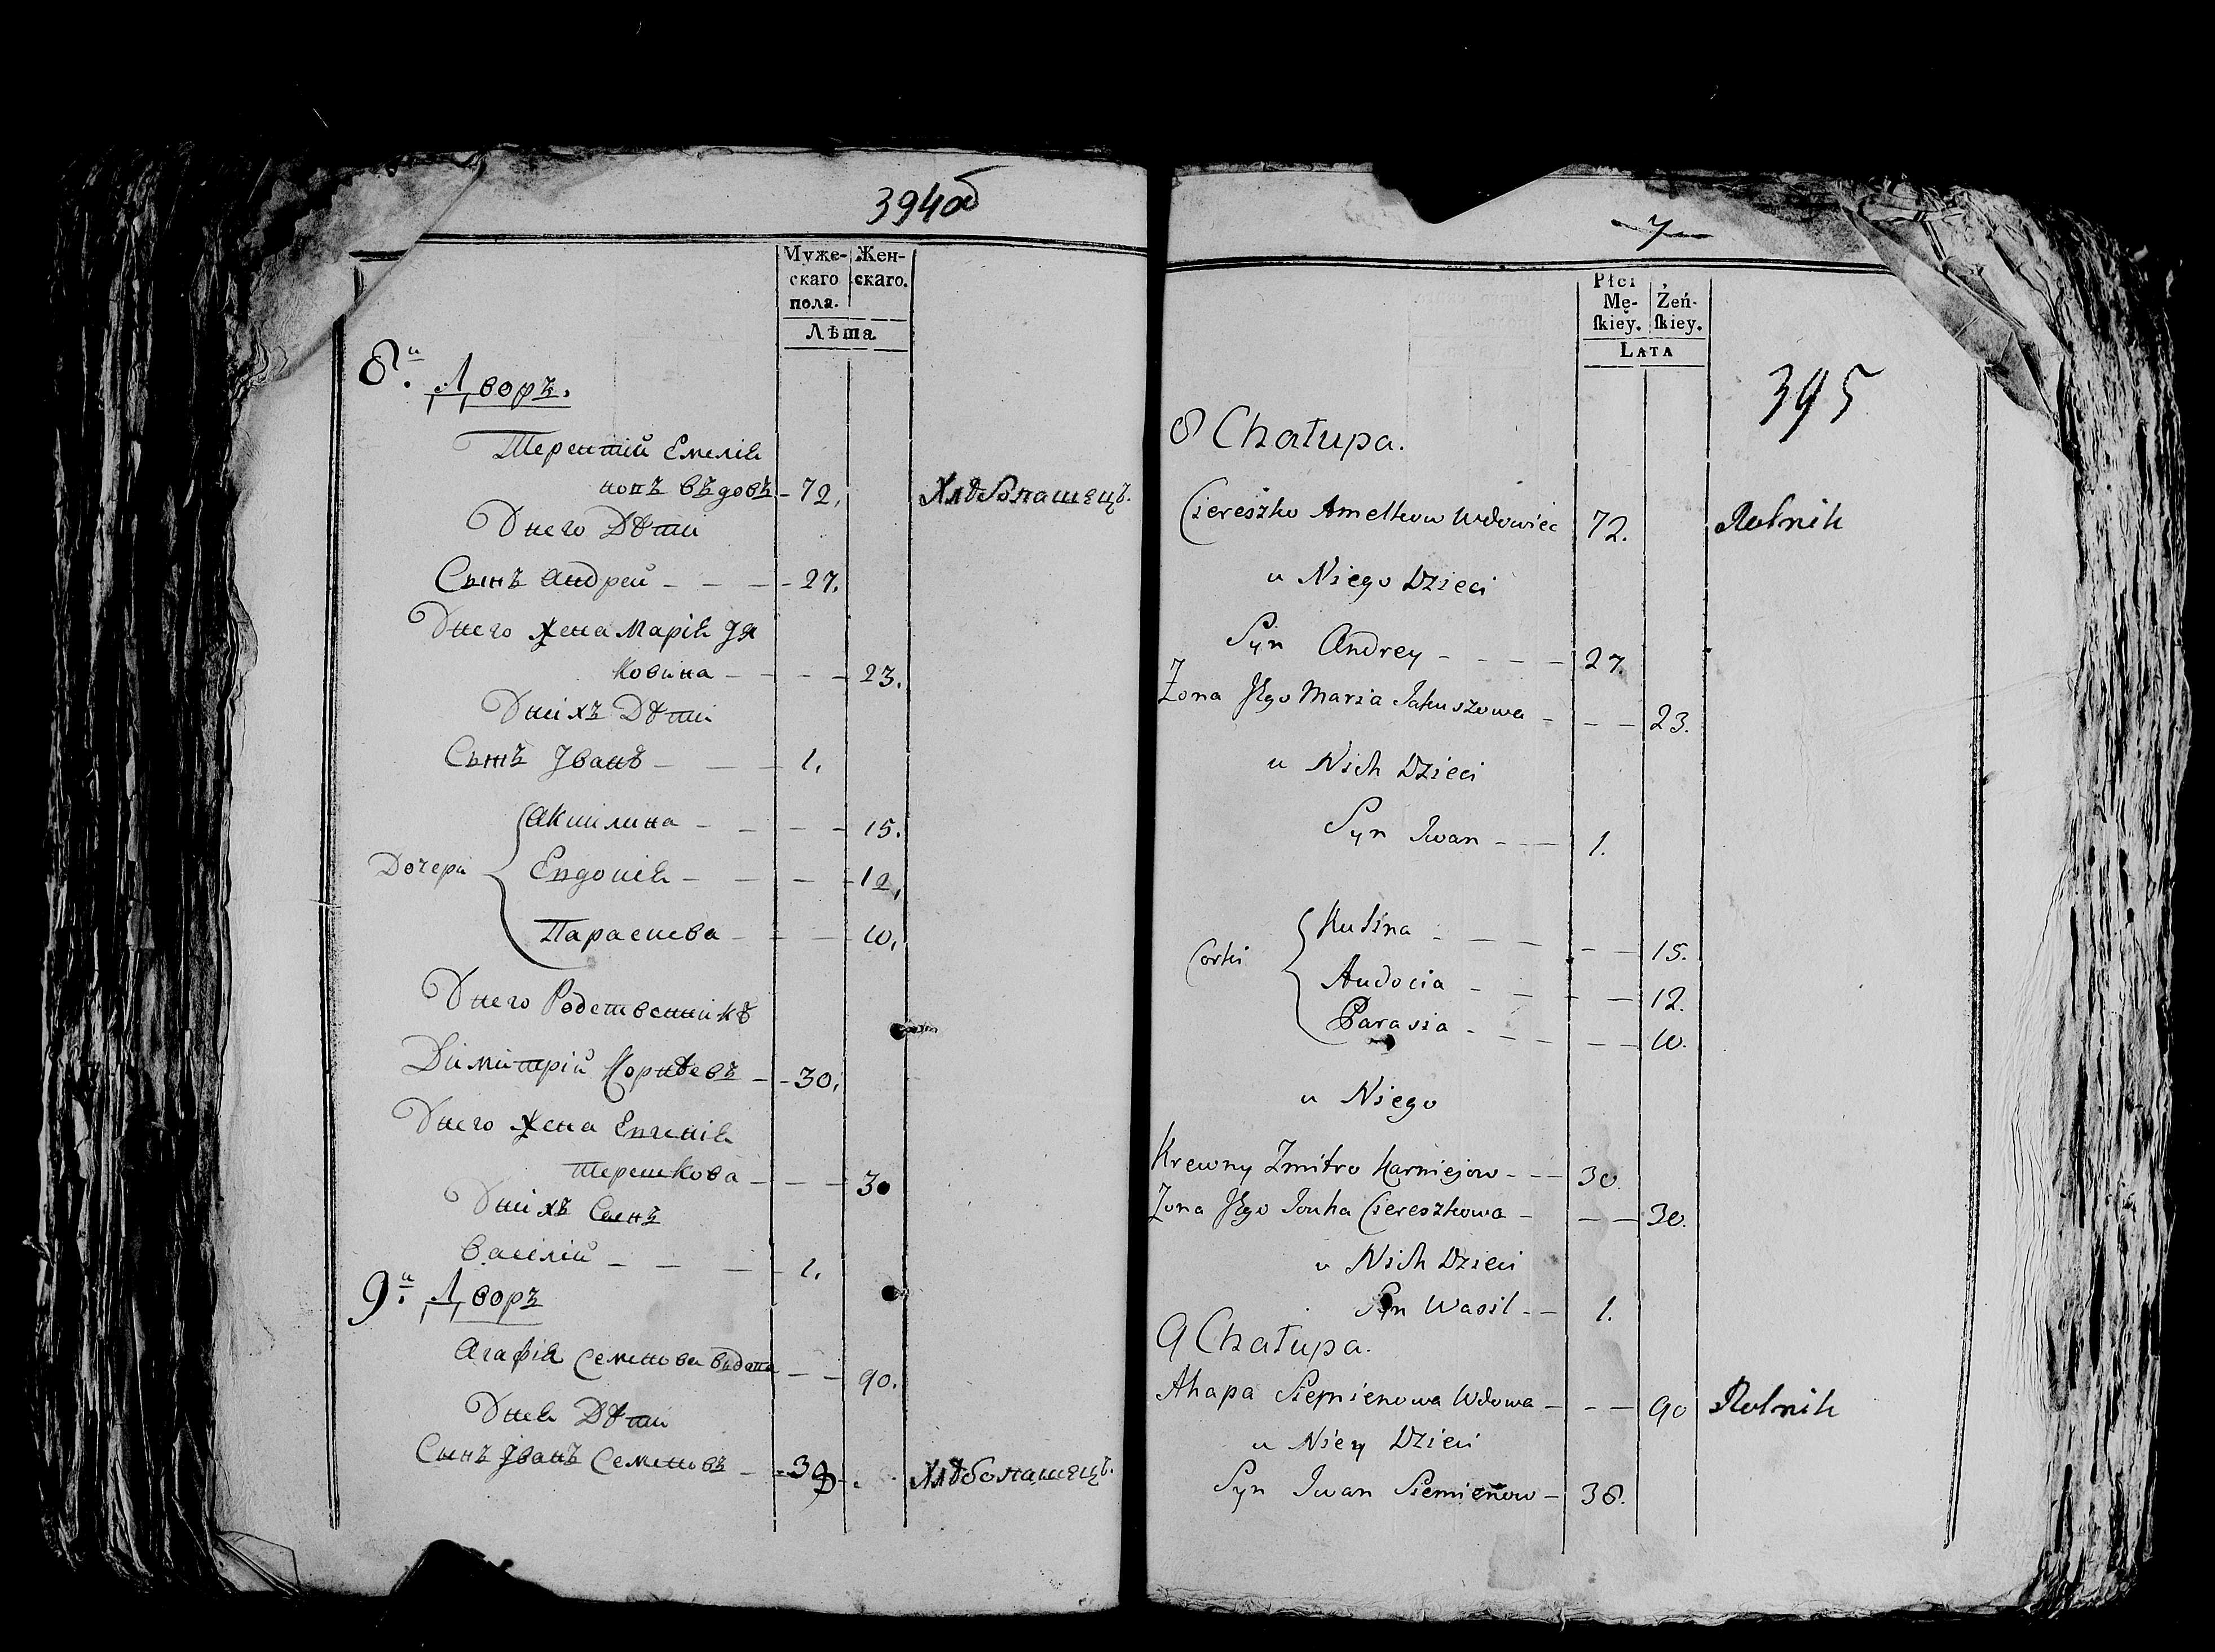 394об
Муже- Жен-
скаго скаго.
пола.
Лѣта
8й. Дворъ.
Терентій Емеліа
новъ вѣдовъ - 72. Хлѣбопашецъ.
Унего Дѣти
Сынъ Андрей - - - 27.
Унего Жена Маріа Jя
ковина - - - - 23.
Унихъ Дѣти
Сынъ Jванъ - - - 1.
Акилина - - - - 15.
Дочери Евдоніа - - - - 12.
Параскева - - - 10.
Унего Родственникъ
Димитрій Корнѣевъ - - 30.
Унего Жена Евгеніа
Терешкова - - - 30
Унихъ Сынъ
Василій - - - 1.
9й. Дворъ
Агафіа Семенова вѣдова - - 90.
Унеа Дѣти
Сынъ Jванъ Семеновъ - - 38 - Хлѣбопашецъ.
7
Płci
Mę- Żeń-
ſkiey. ſkiey.
LATA
395
8 Chałupa.
Ciereszko Amelkow Wdowiec 72. Rolnik
u Niego Dzieci
Syn Andrey - - - - 27.
Żona Jego Maria Jakuszowa - - - 23.
u Nich Dzieci
Syn Jwan - - - 1.
Kulina - - - - - 15.
Corki Audocia - - - - 12.
Parasia - - - - - 10.
u Niego
Krewny Zmitro Karniejow - - - 30.
Żona Jego Jouha Ciereszkowa - - - 30.
u Nich Dzieci
Syn Wasil - - 1.
9 Chałupa.
Ahapa Siemienowa Wdowa - - - 90 Rolnik
u Niey Dzieci
Syn Jwan Siemienow - 38.